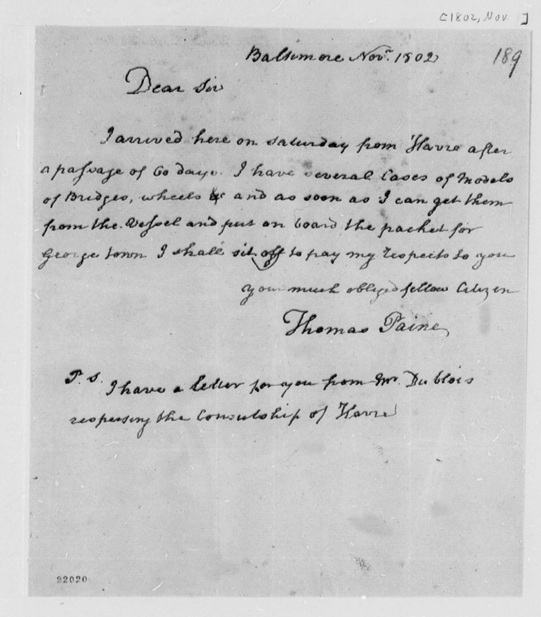 [1802, Nov ]
Baltimore Novr. 1802
189
Dear Sir
I arrived here on Saturday from Havre after
a passage of 60 days. I have several Cases of Models
of Bridges, wheels &c and as soon as I can get them
from the Vessel and put on board the packet for
George town I shall sit off to pay my respects to you
your much obliged fellow Citizen
Thomas Paine
P.S. I have a letter for you from Mr. Dublois
respecting the Consulship of Havre
22020